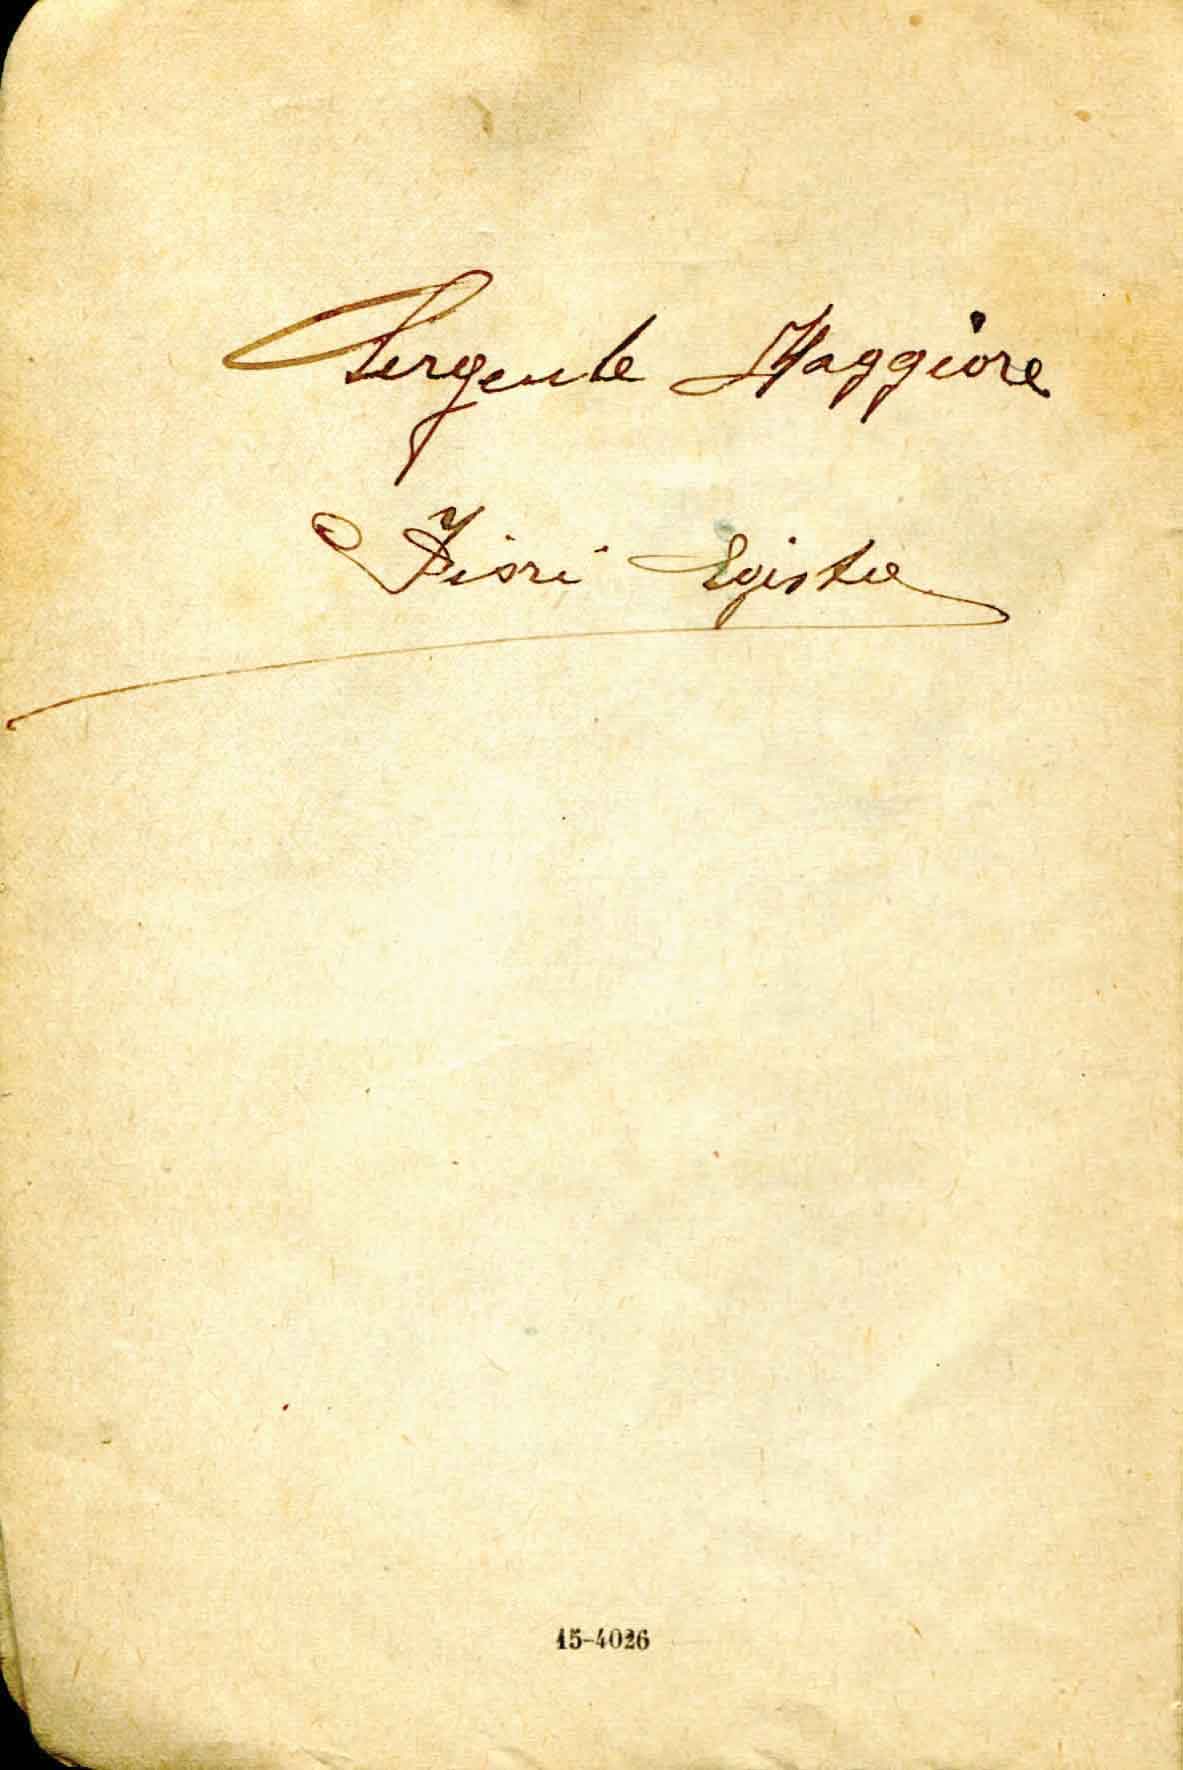 Sergente Maggiore
Fiori Egisto
15-4026